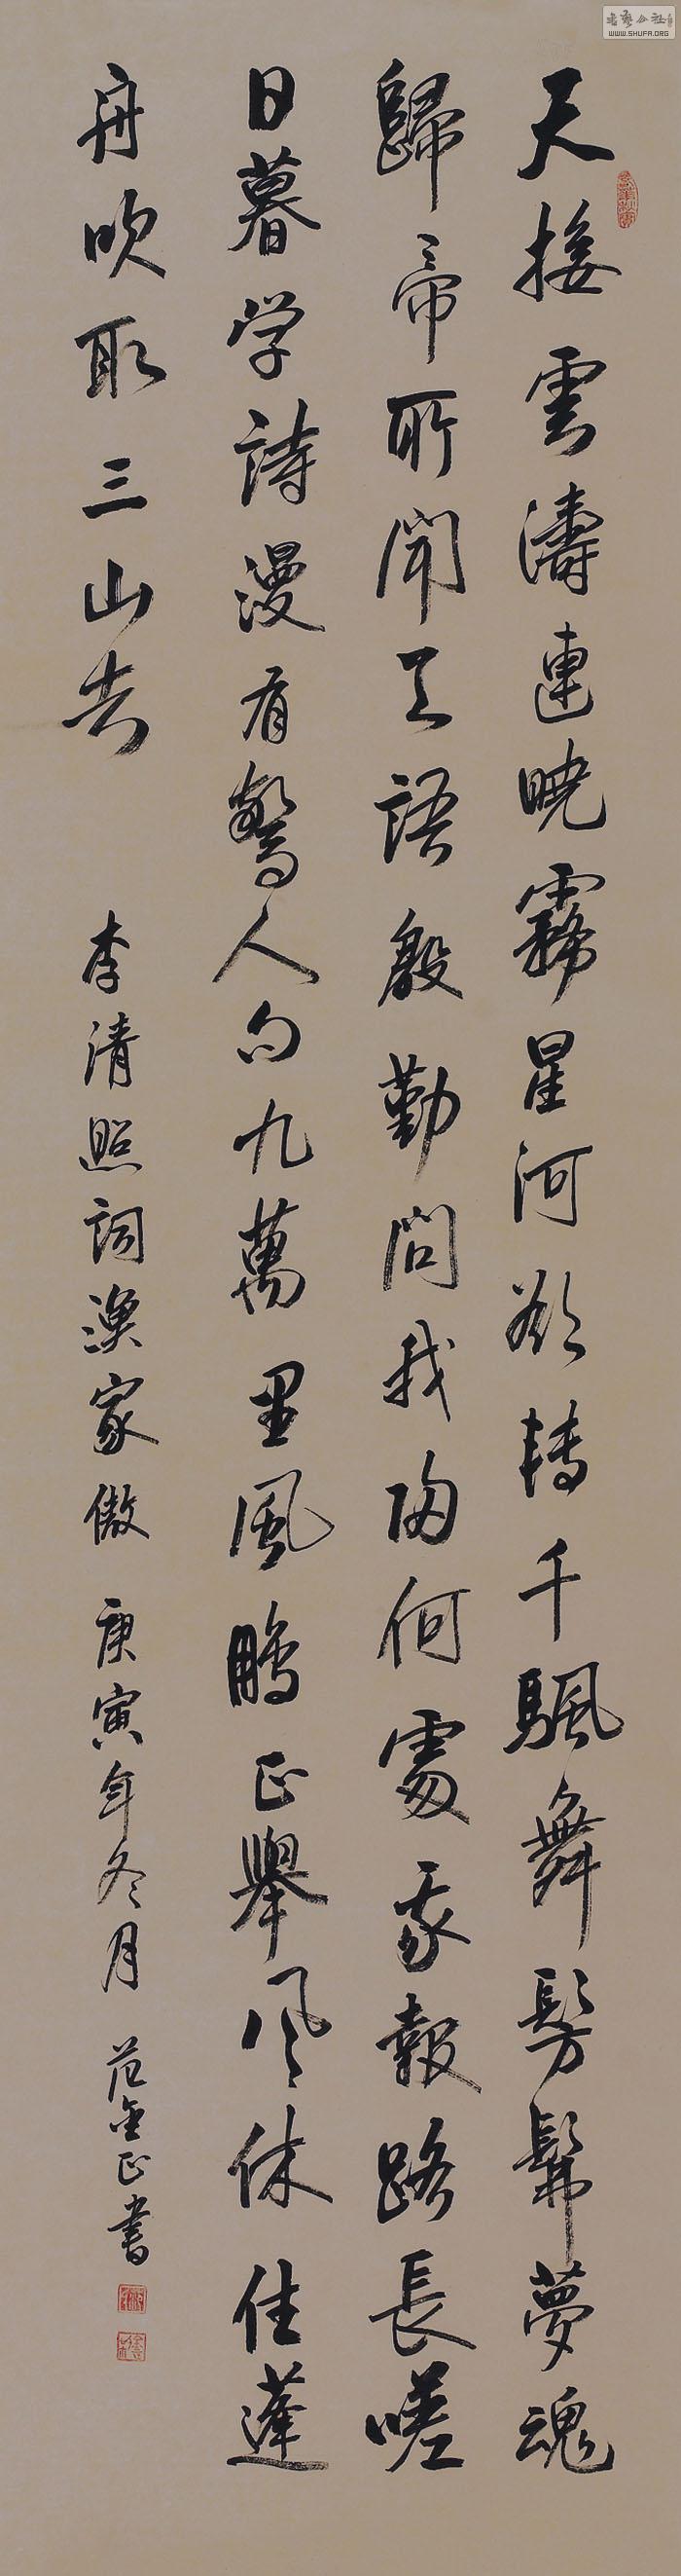 天接雲濤連曉霧星河欲轉千颿舞髣髴夢魂
歸帝所聞天語殷勤問我歸何處我報路長嗟
日暮学詩漫有驚人句九萬里風鵬正舉風休住蓬
舟吹取三山去 李清照詞漁家傲 庚寅年冬月 范金正書
WWW.SHUFA.ORG